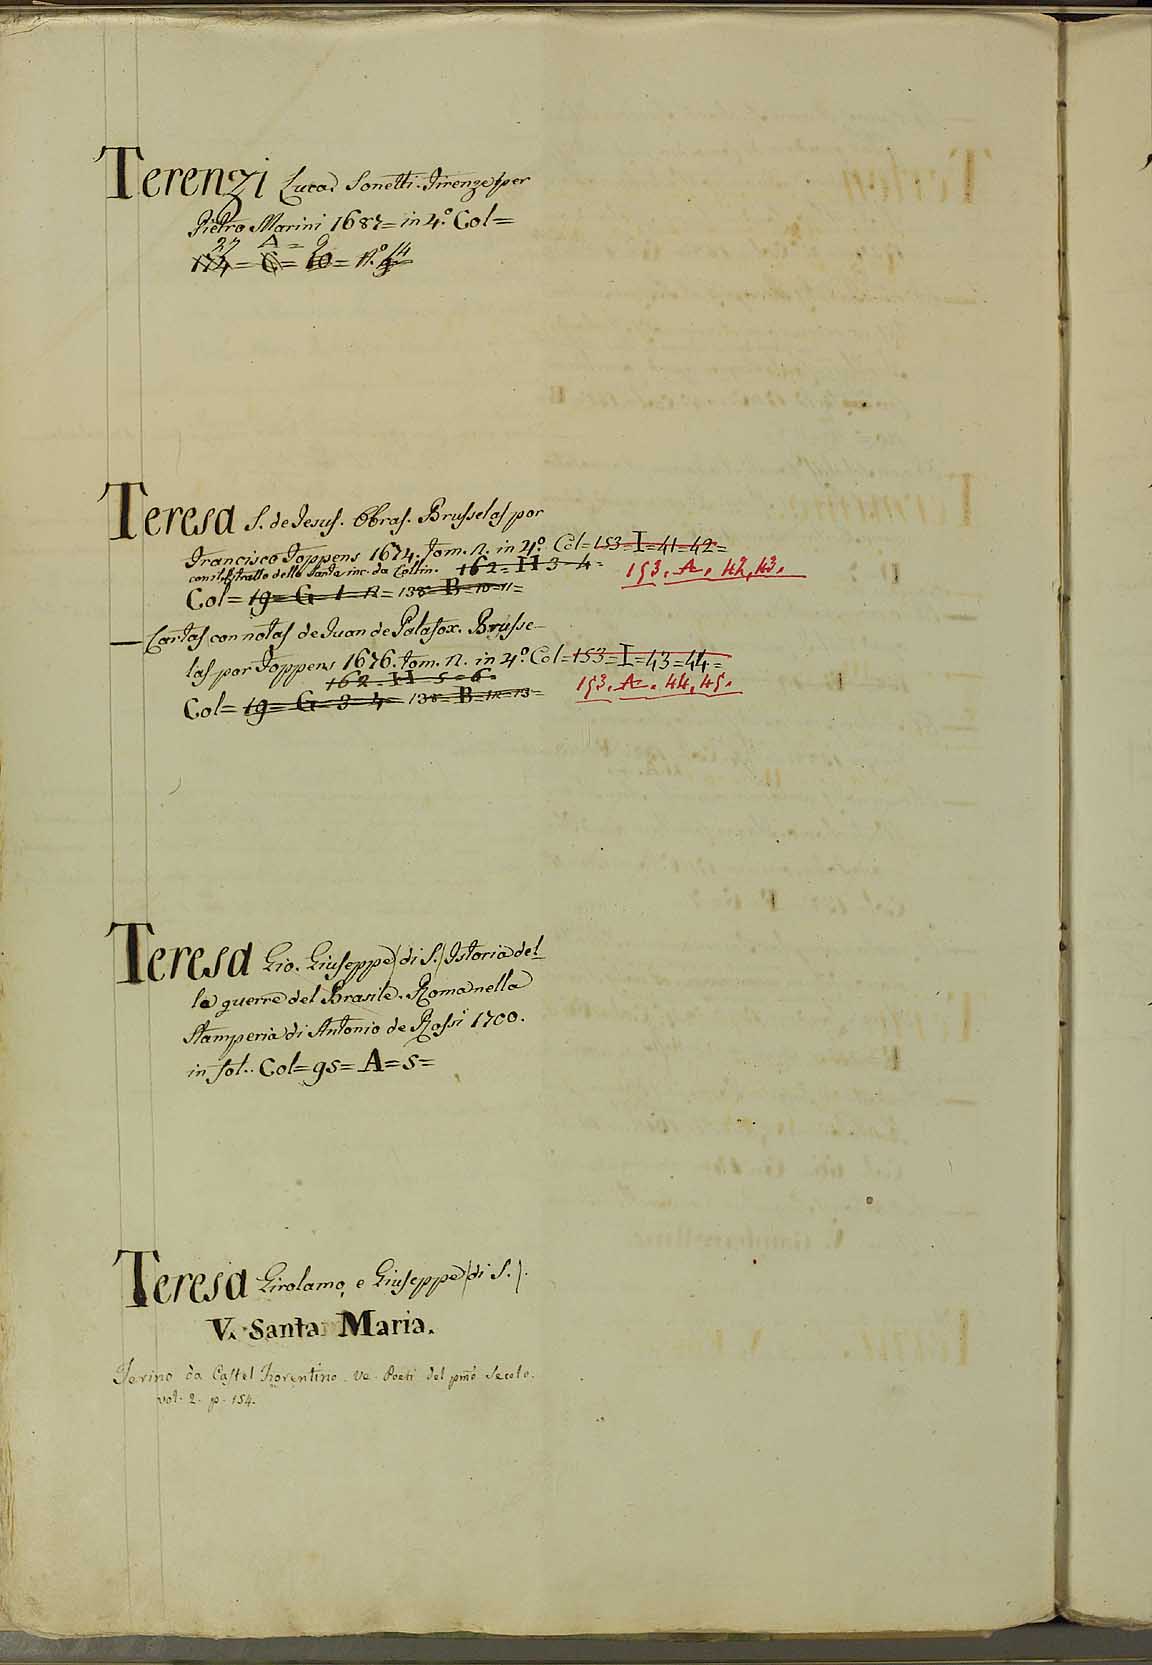 Terenzi Luca. Sonetti. Firenze per
Pietro Marini 1687= in 4.º Col=
27 A = 9
174= G= 10= n.º 14
Teresa S. de Jesus. Obras. Brusselas por
Francisco Foppens 1674. Tom. 2. in 4.º Col=153=I=41=42=
con il Ritratto della Santa inc. da Collin. 162=H 3-4= 153. A. 42,43.
Col= 19= G= 1= 2= 138= B=10=11=
— Cartas con notas de Juan de Palafox. Brusse-
las por Foppens 1676. Tom. 2. in 4.º Col=153=I=43=44=
162=H=5=6. 153. A. 44,45.
Col= 19= G= 3= 4= 138= B=12=13=
Teresa Gio. Giuseppe (di S.) Istoria del-
le guerre del Brasile. Roma nella
Stamperia di Antonio de Rossi 1700.
in fol.. Col=95= A=5=
Teresa Girolamo, e Giuseppe (di S.).
V. Santa Maria.
Terino da Castel Fiorentino. ve. Poeti del pmo Secolo.
vol. 2. p. 154.